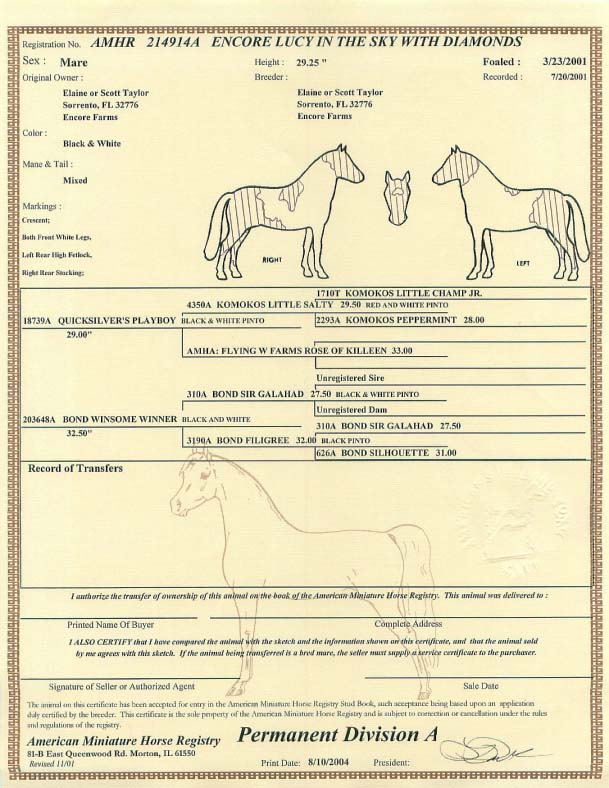 Registration No. AMHR 214914A ENCORE LUCY IN THE SKY WITH DIAMONDS
Sex : Mare Height : 29.25 " Foaled : 3/23/2001
Original Owner : Breeder : Recorded : 7/20/2001
Elaine or Scott Taylor Elaine or Scott Taylor
Sorrento, FL 32776 Sorrento, FL 32776
Encore Farms Encore Farms
Color :
Black & White
Mane & Tail :
Mixed
Markings :
Crescent;
Both Front White Legs,
Left Rear High Fetlock,
Right Rear Stocking;
RIGHT LEFT
1710T KOMOKOS LITTLE CHAMP JR.
4350A KOMOKOS LITTLE SALTY 29.50 RED AND WHITE PINTO
18739A QUICKSILVER'S PLAYBOY BLACK & WHITE PINTO 2293A KOMOKOS PEPPERMINT 28.00
29.00"
AMHA: FLYING W FARMS ROSE OF KILLEEN 33.00
Unregistered Sire
310A BOND SIR GALAHAD 27.50 BLACK & WHITE PINTO
Unregistered Dam
203648A BOND WINSOME WINNER BLACK AND WHITE 310A BOND SIR GALAHAD 27.50
32.50"
3190A BOND FILIGREE 32.00 BLACK PINTO
626A BOND SILHOUETTE 31.00
Record of Transfers
I authorize the transfer of ownership of this animal on the book of the American Miniature Horse Registry. This animal was delivered to :
Printed Name Of Buyer Complete Address
I ALSO CERTIFY that I have compared the animal with the sketch and the information shown on this certificate, and that the animal sold
by me agrees with this sketch. If the animal being transferred is a bred mare, the seller must supply a service certificate to the purchaser.
Signature of Seller or Authorized Agent Sale Date
The animal on this certificate has been accepted for entry in the American Miniature Horse Registry Stud Book, such acceptance being based upon an application
duly certified by the breeder. This certificate is the sole property of the American Miniature Horse Registry and is subject to correction or cancellation under the rules
and regulations of the registry.
American Miniature Horse Registry Permanent Division A
81-B East Queenwood Rd. Morton, IL 61550
Revised 11/01 Print Date: 8/10/2004 President: